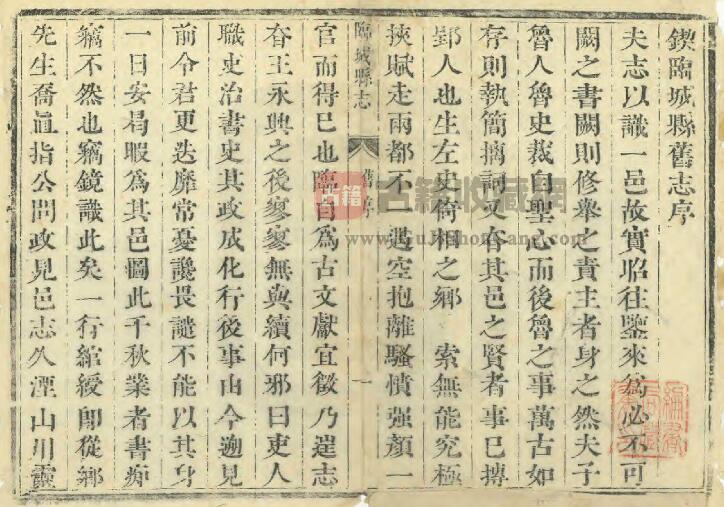 鍥臨城縣舊志序
夫志以識一邑故實昭往鑒來為必不可
闕之書闕則修舉之責主者身之然夫子
魯人魯史裁自聖心而後魯之事萬古如
存則執簡摛詞又在其邑之賢者事已
郢人也生左史倚相之鄉 索無能究極
挾賦走兩都不遇空抱離騷憤强顏一
臨城縣志 舊序 一
官而得已也臨自為古文獻宜徵乃 志
在王永興之後寥寥無與續何邪曰吏人
職史治書史其政成化行後事由今遡見
前令君更迭靡常憂讒畏譴不能以其身
一日安曷暇為其邑圖此千秋業者書痴
竊不然也竊鏡識此矣一行綰綬卽從鄉
先生喬眞指公問政見邑志久湮山川靈
古籍
古籍收藏網